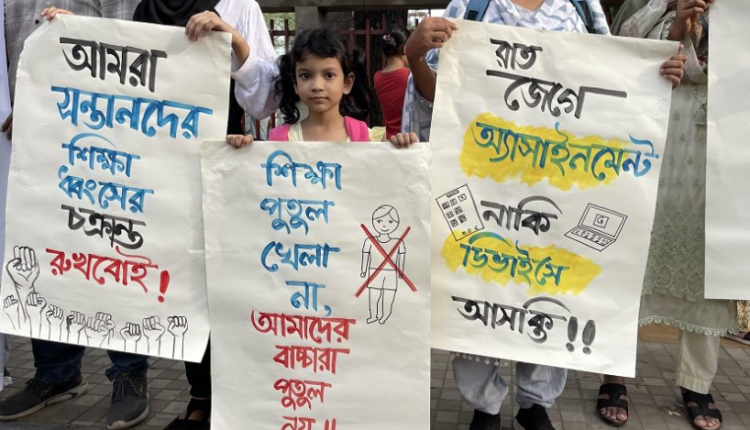 আমরা
সন্তানদের
শিক্ষা
ধ্বংসের
চক্রান্ত
রুখবোই!
শিক্ষা
পুতুল
খেলা
না,
আমাদের
বাচ্চারা
পুতুল
নয়!!
রাত
জেগে
অ্যাসাইনমেন্ট
নাকি
ডিভাইসে
আসক্তি!!